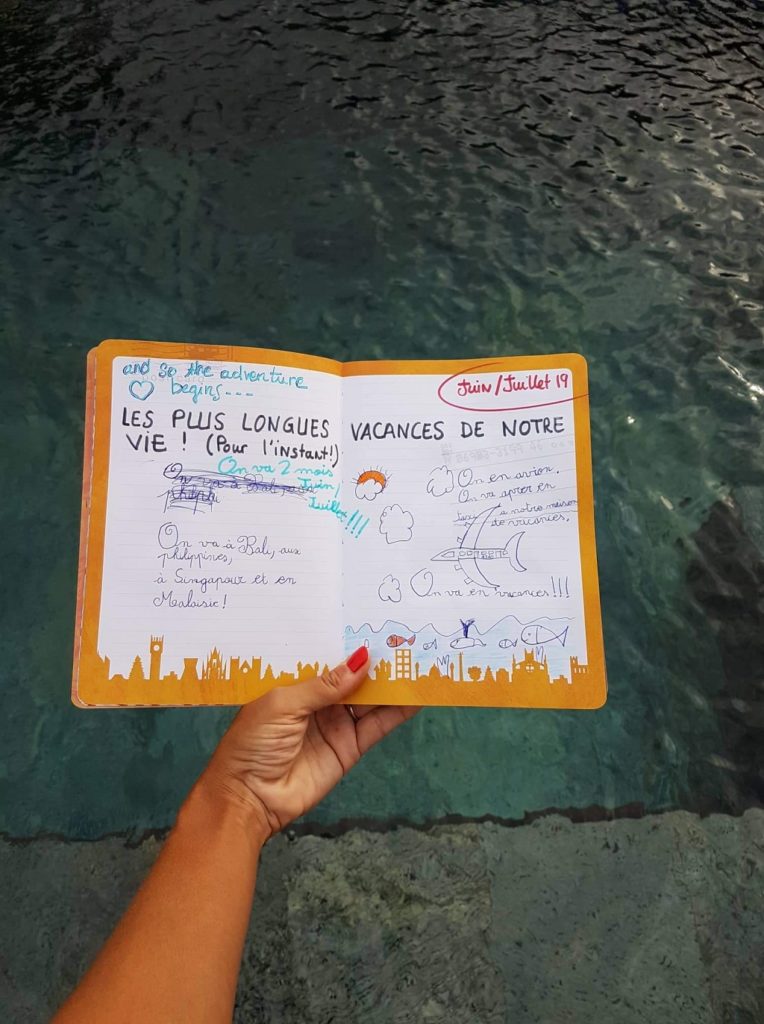 and so the adventure
begins...
Juin/Juillet 19
LES PLUS LONGUES VACANCES DE NOTRE
VIE ! (Pour l'instant!)
On va 2 mois
Juin/
Juillet!!!
On va à Bali
On va à Bali, aux
philippines,
à Singapour et en
Malaisie!
On en avion.
On va aprer en
taxi à notre maison
de vacances.
On va en vacances!!!